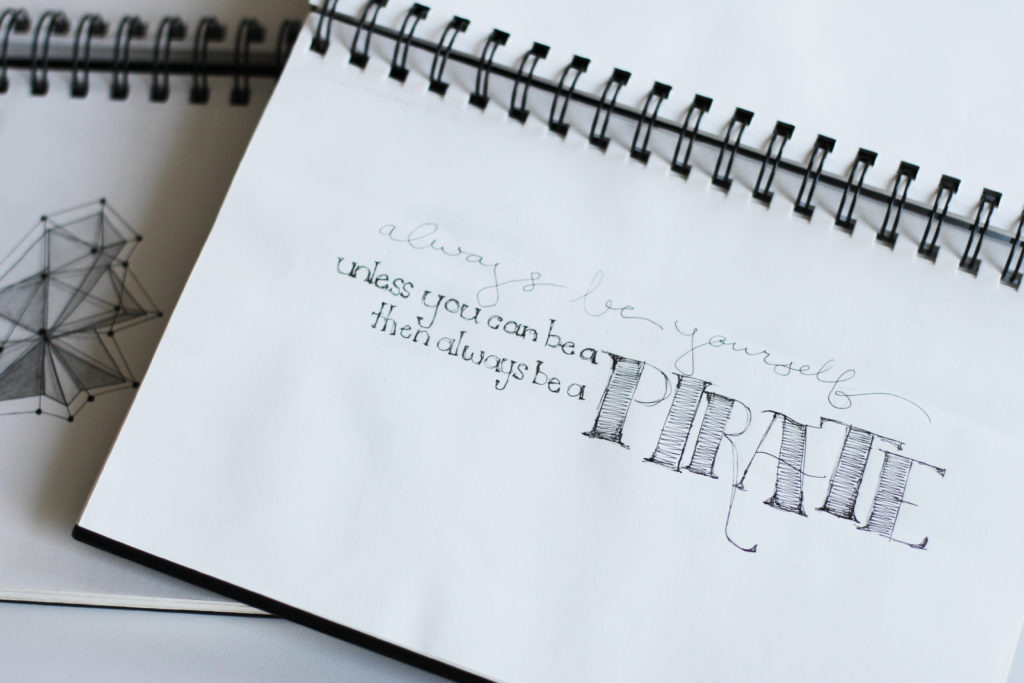 always be yourself
unless you can be a
then always be a
PIRATE